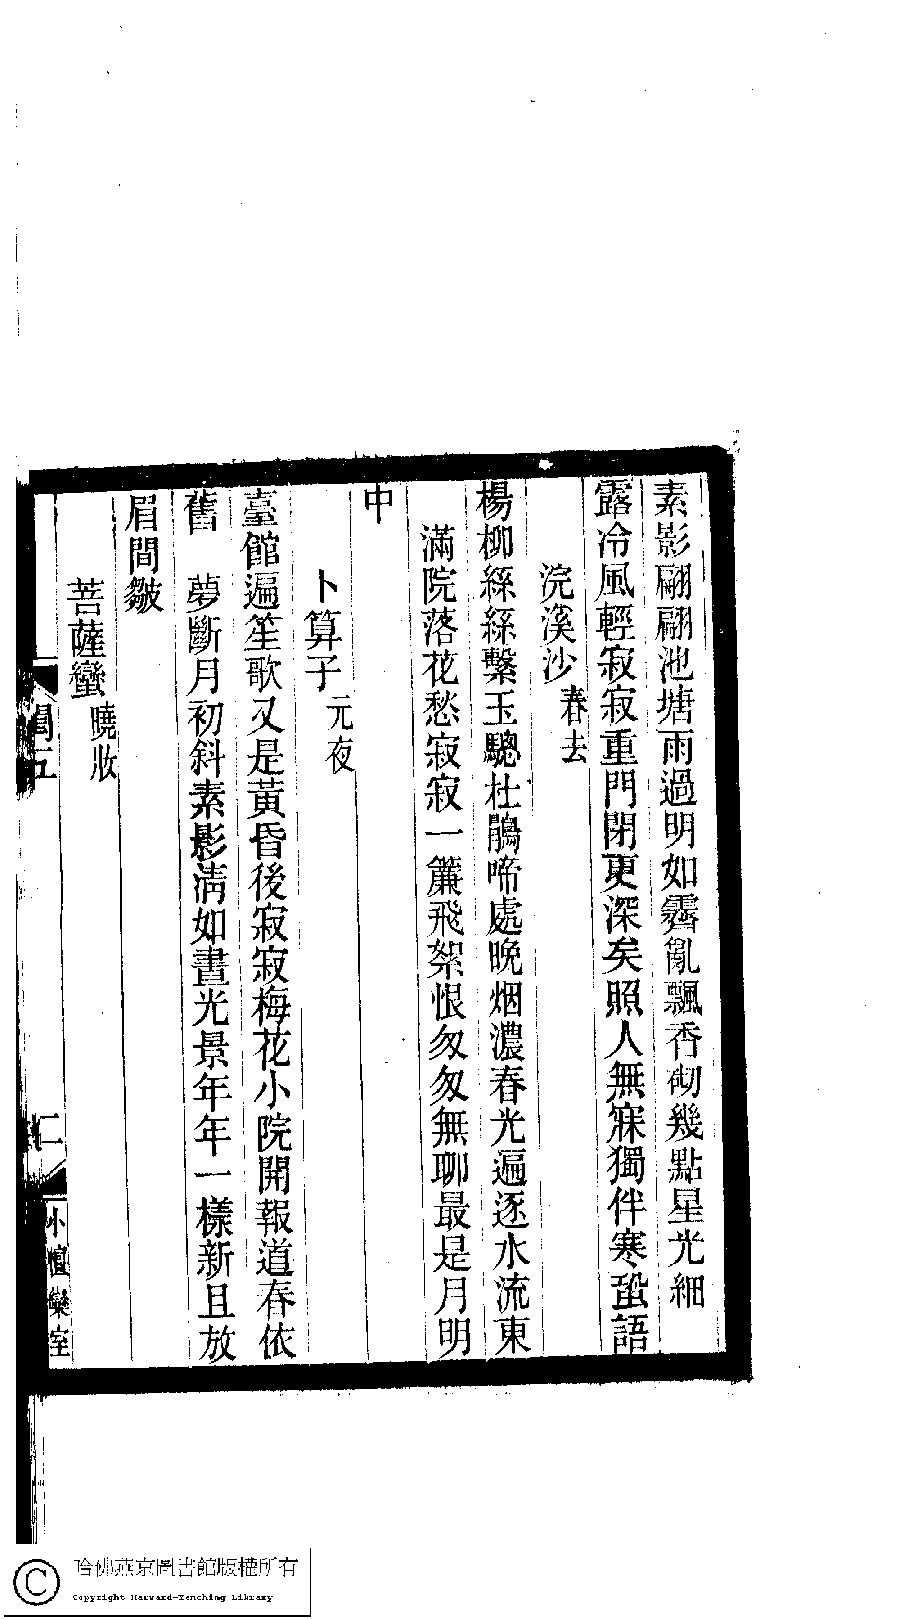 素影翩翩池塘雨過明如霽亂飄香砌幾點星光細
露冷風輕寂寂重門閉更深矣照人無寐獨伴寒蛩語
浣溪沙 春去
楊柳絲絲繫玉驄杜鵑啼處晚烟濃春光遍逐水流東
滿院落花愁寂寂一簾飛絮恨匆匆無聊最是月明
中
卜算子 元夜
臺館遍笙歌又是黃昏後寂寂梅花小院開報道春依
舊 夢斷月初斜素影淸如晝光景年年一樣新且放
眉間皺
菩薩蠻 曉妝
二
小檀欒室
哈佛燕京圖書館版權所有
Copyright Harvard-Yenching Library